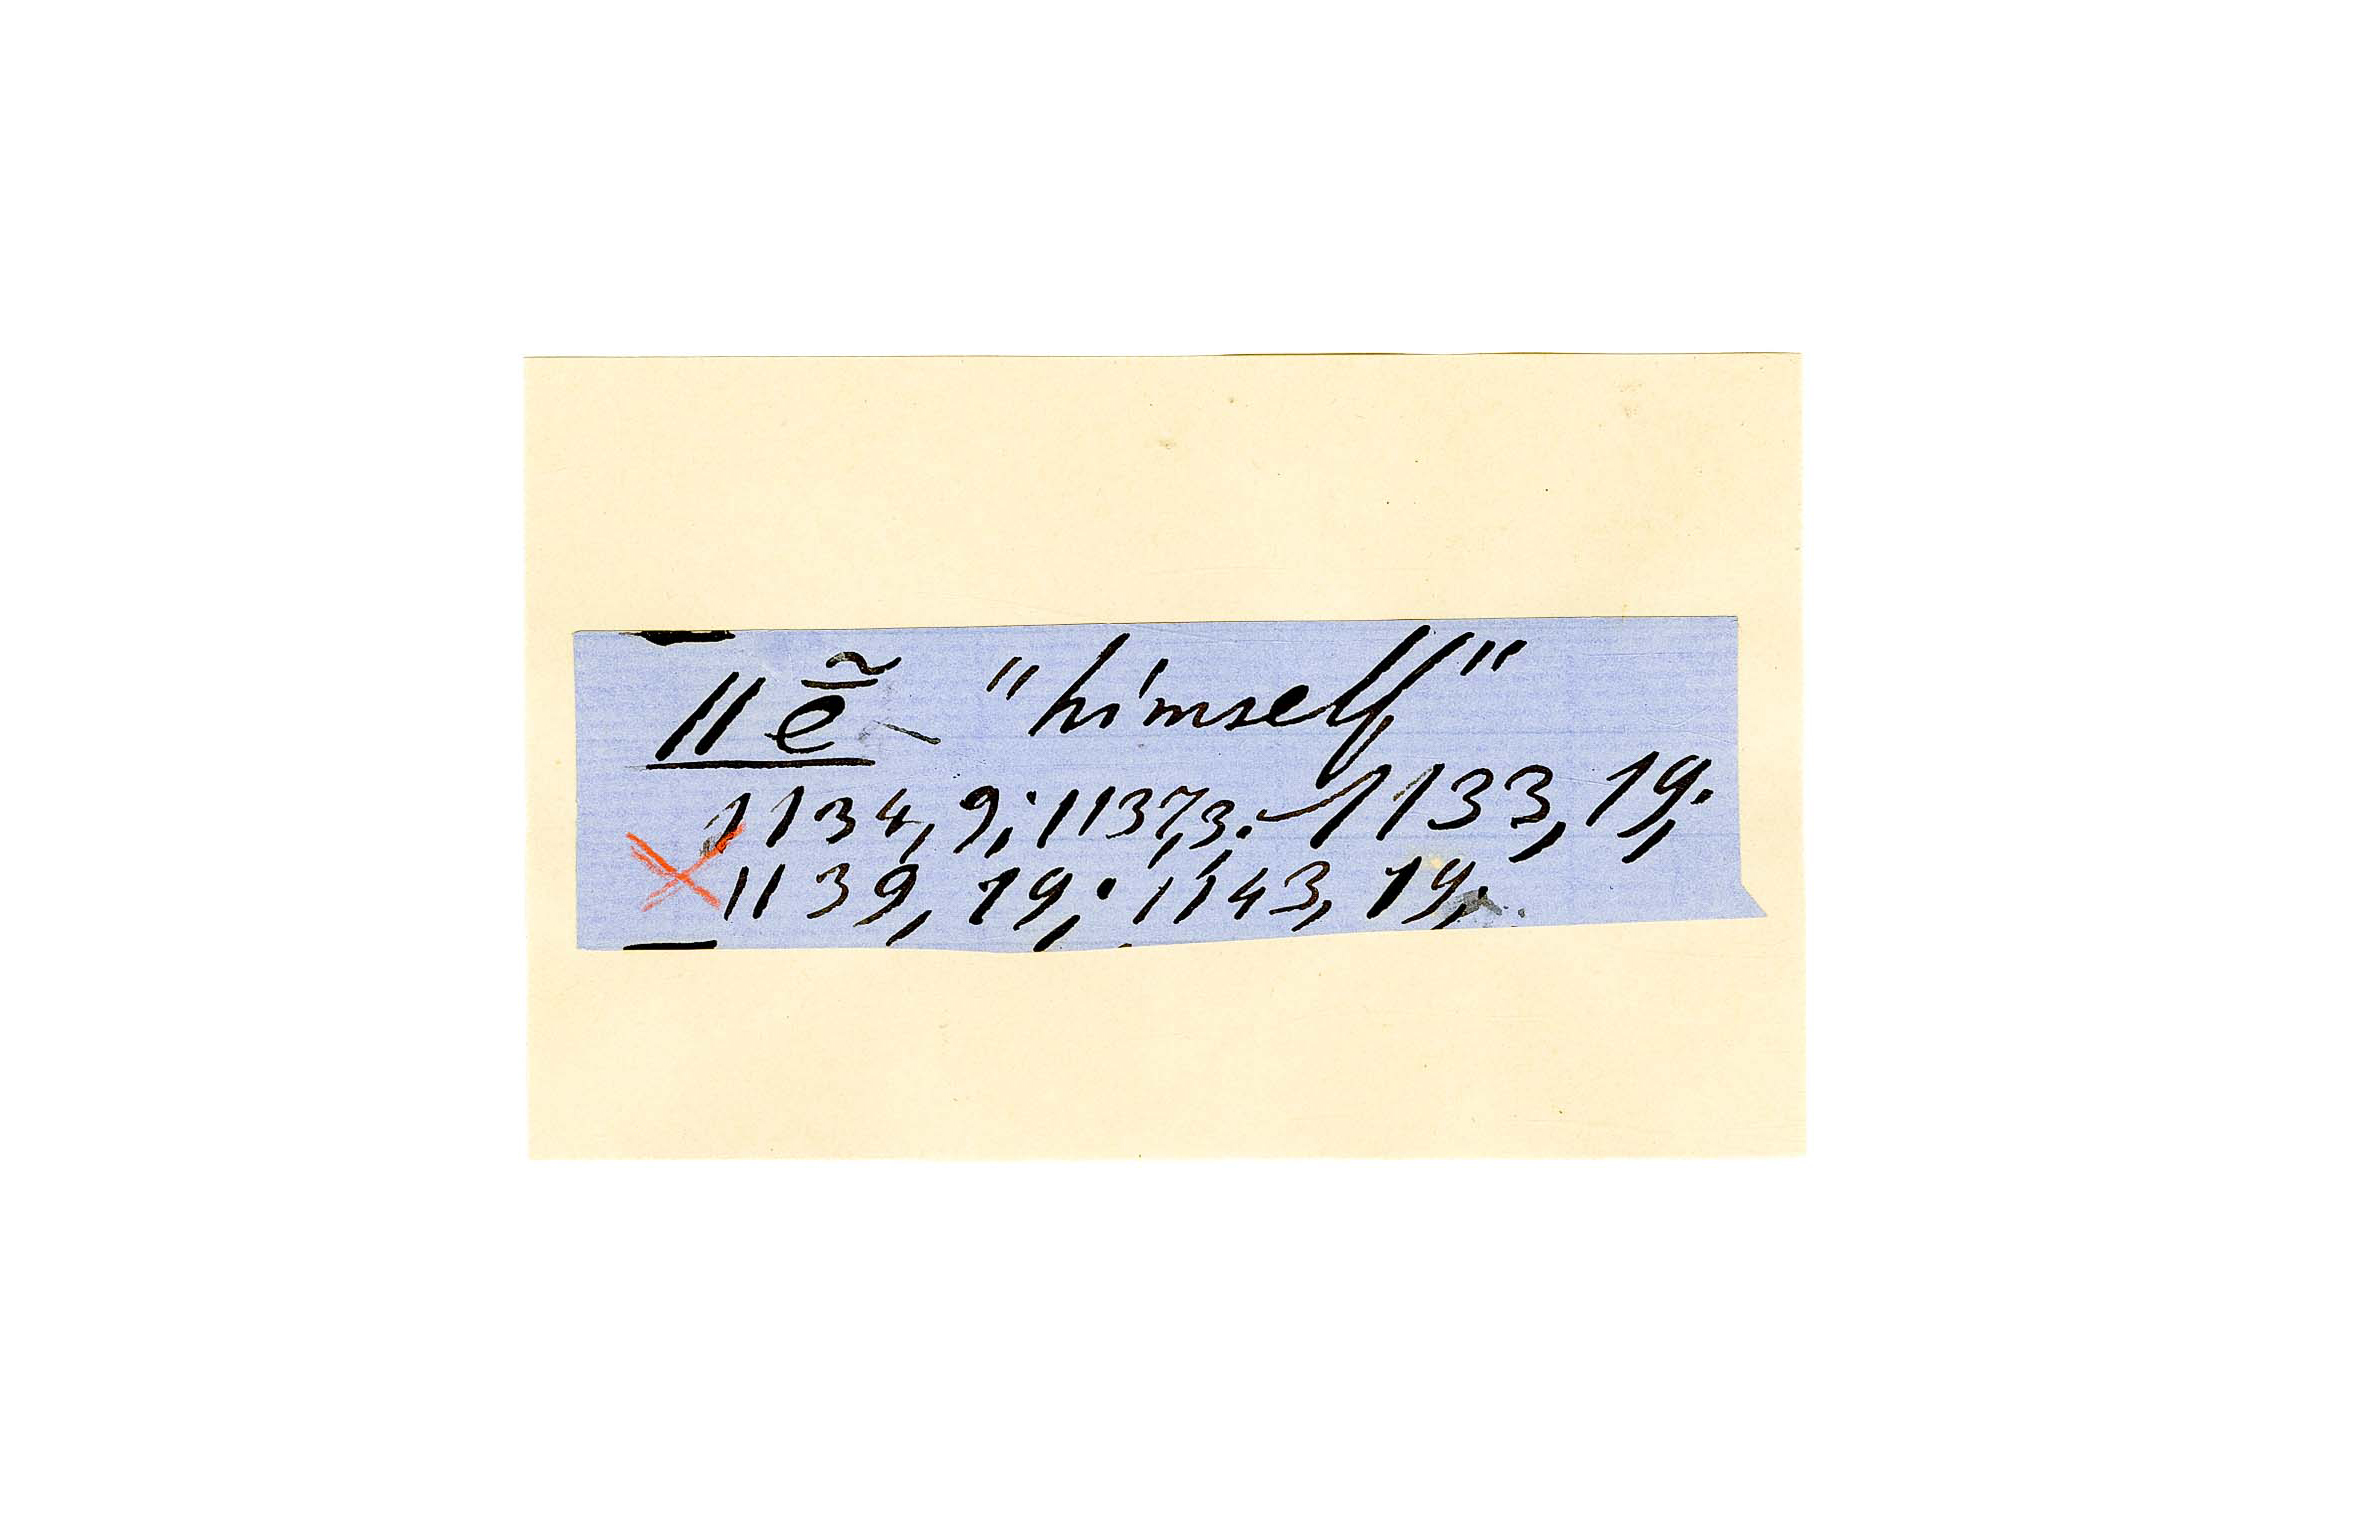 // ē̃ "himself"
1134, 9; 1137,3. – 1133, 19;
1139, 19; 1143, 19;